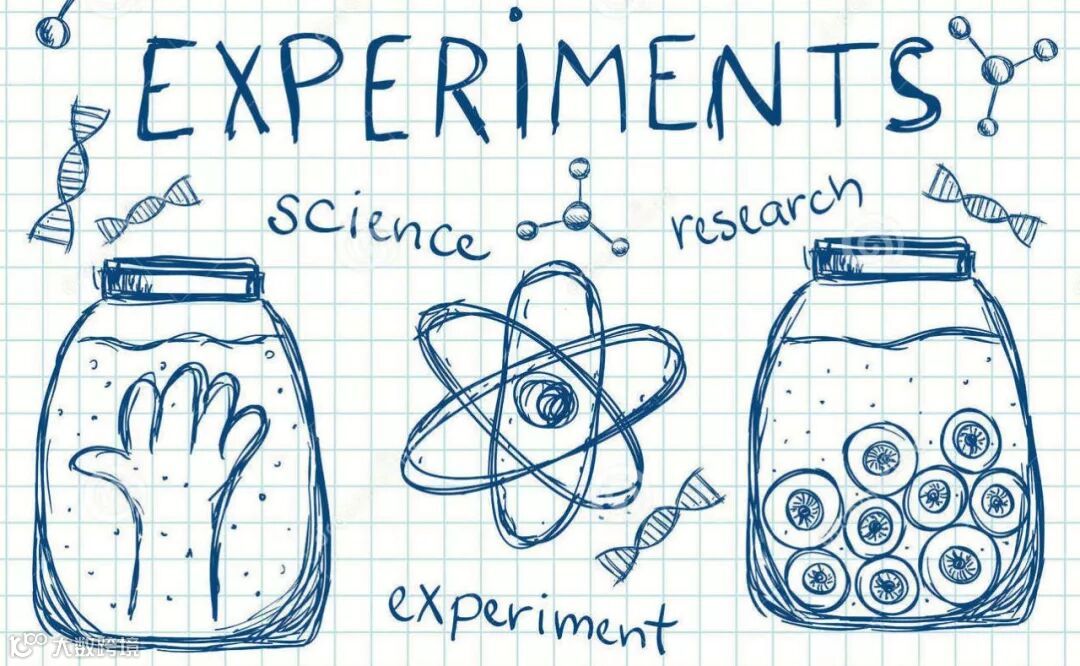 EXPERIMENTS
science
research
experiment
大数跨境